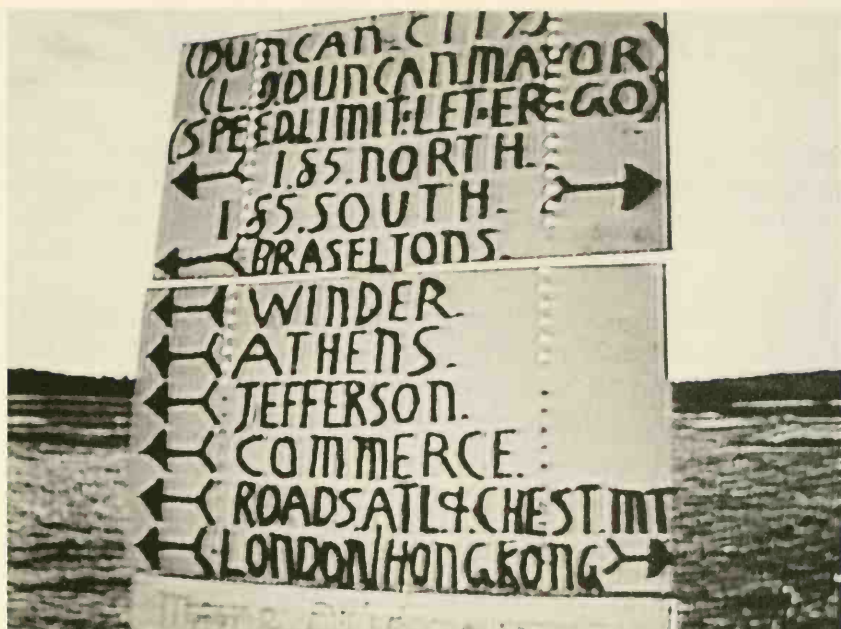 (DUNCAN-CITY)
(L.D.DUNCAN.MAYOR)
(SPEED.LIMIT.LET.ER.GO)
I.85.NORTH.
I.85.SOUTH.
BRASELTONS.
WINDER.
ATHENS.
JEFFERSON.
COMMERCE.
ROADS.ATL&.CHEST.MT
LONDON/HONGKONG